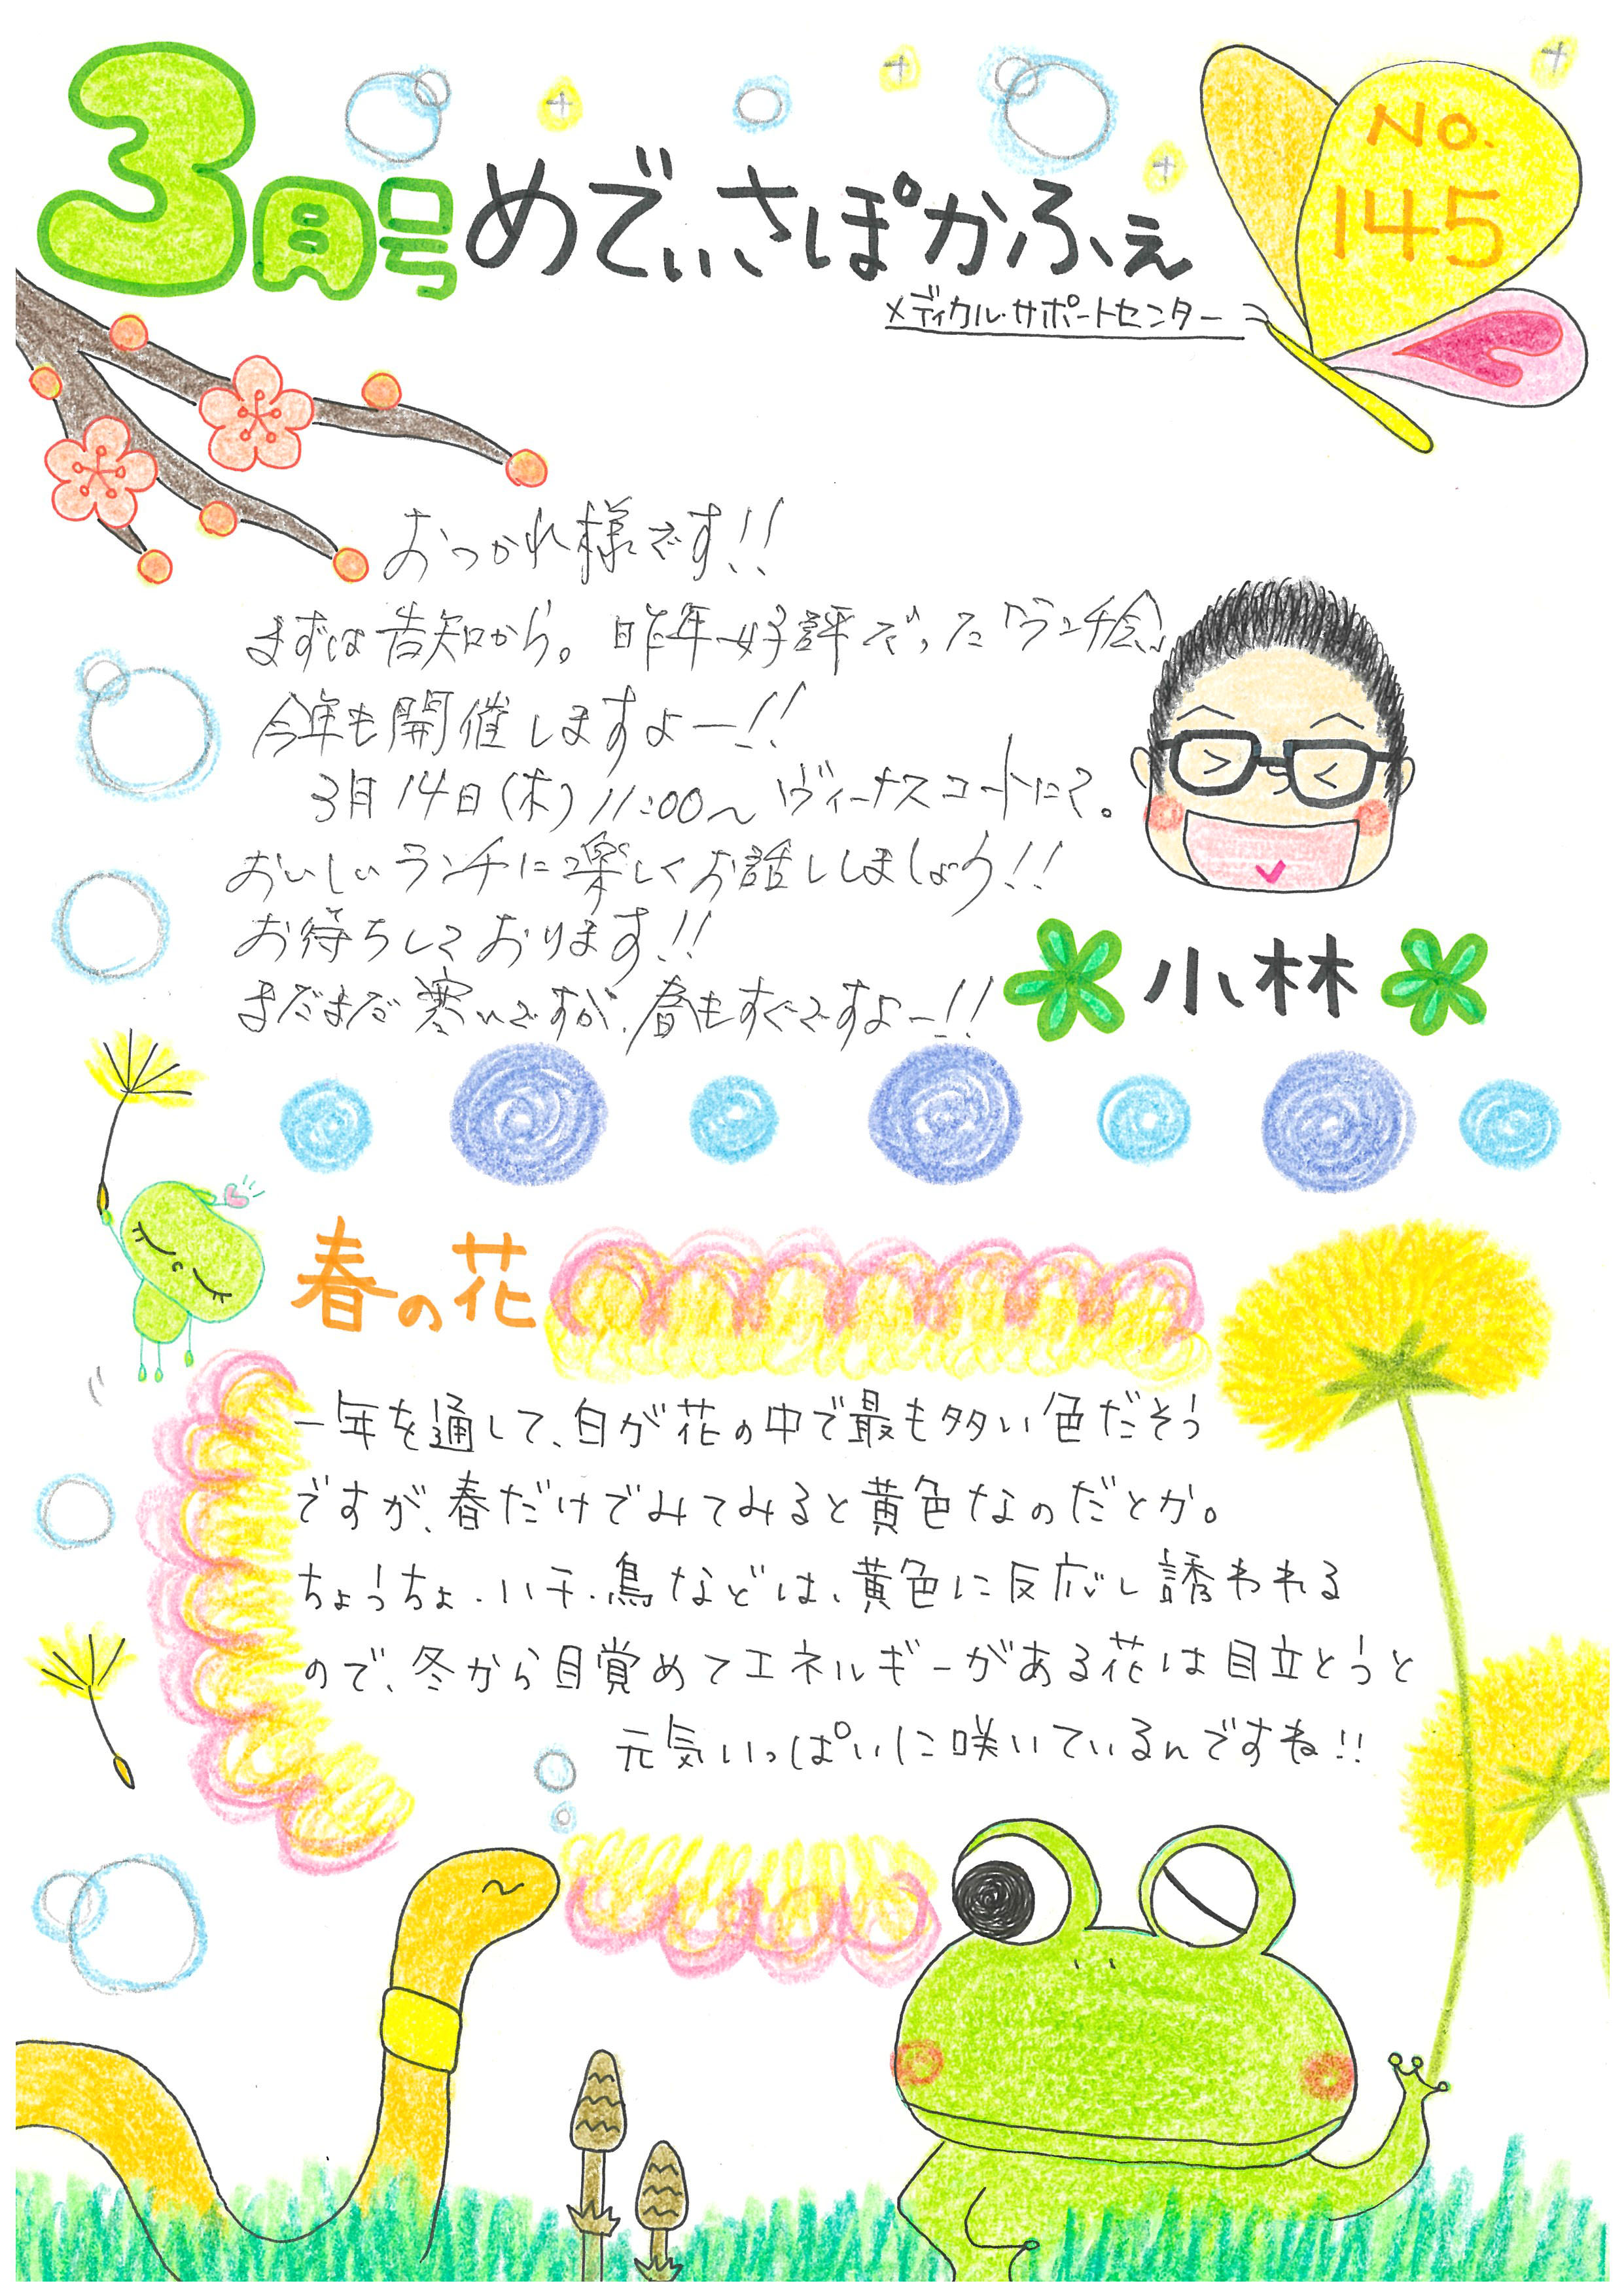 3月号 めでぃさぽかふぇ
No.
145
メディカル・サポートセンター
おつかれ様です!!
まずは告知から。昨年好評だった「ランチ会」
今年も開催しますよー!!
3月14日(木)11:00〜ヴィーナスコートにて。
おいしいランチに楽しくお話ししましょう!!
お待ちしております!!
まだまだ寒いですが、春もすぐですよー!!
小林
春の花
一年を通して、白が花の中で最も多い色だそう
ですが、春だけでみてみると黄色なのだとか。
ちょうちょ・ハチ・鳥などは、黄色に反応し誘われる
ので、冬から目覚めてエネルギーがある花は目立とうと
元気いっぱいに咲いているんですね!!